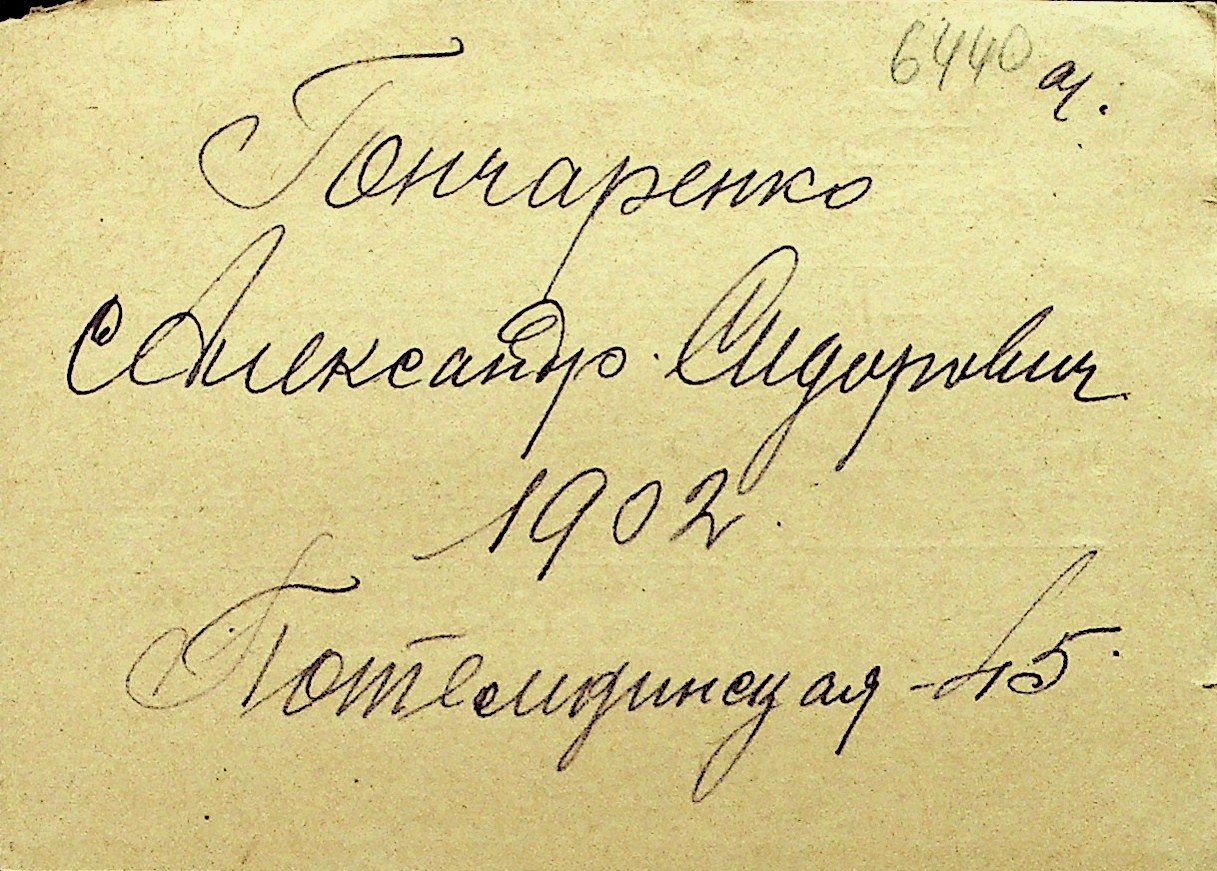 6440 а.
Гончаренко
Александр Сидорович
1902.
Потемкинская 45.